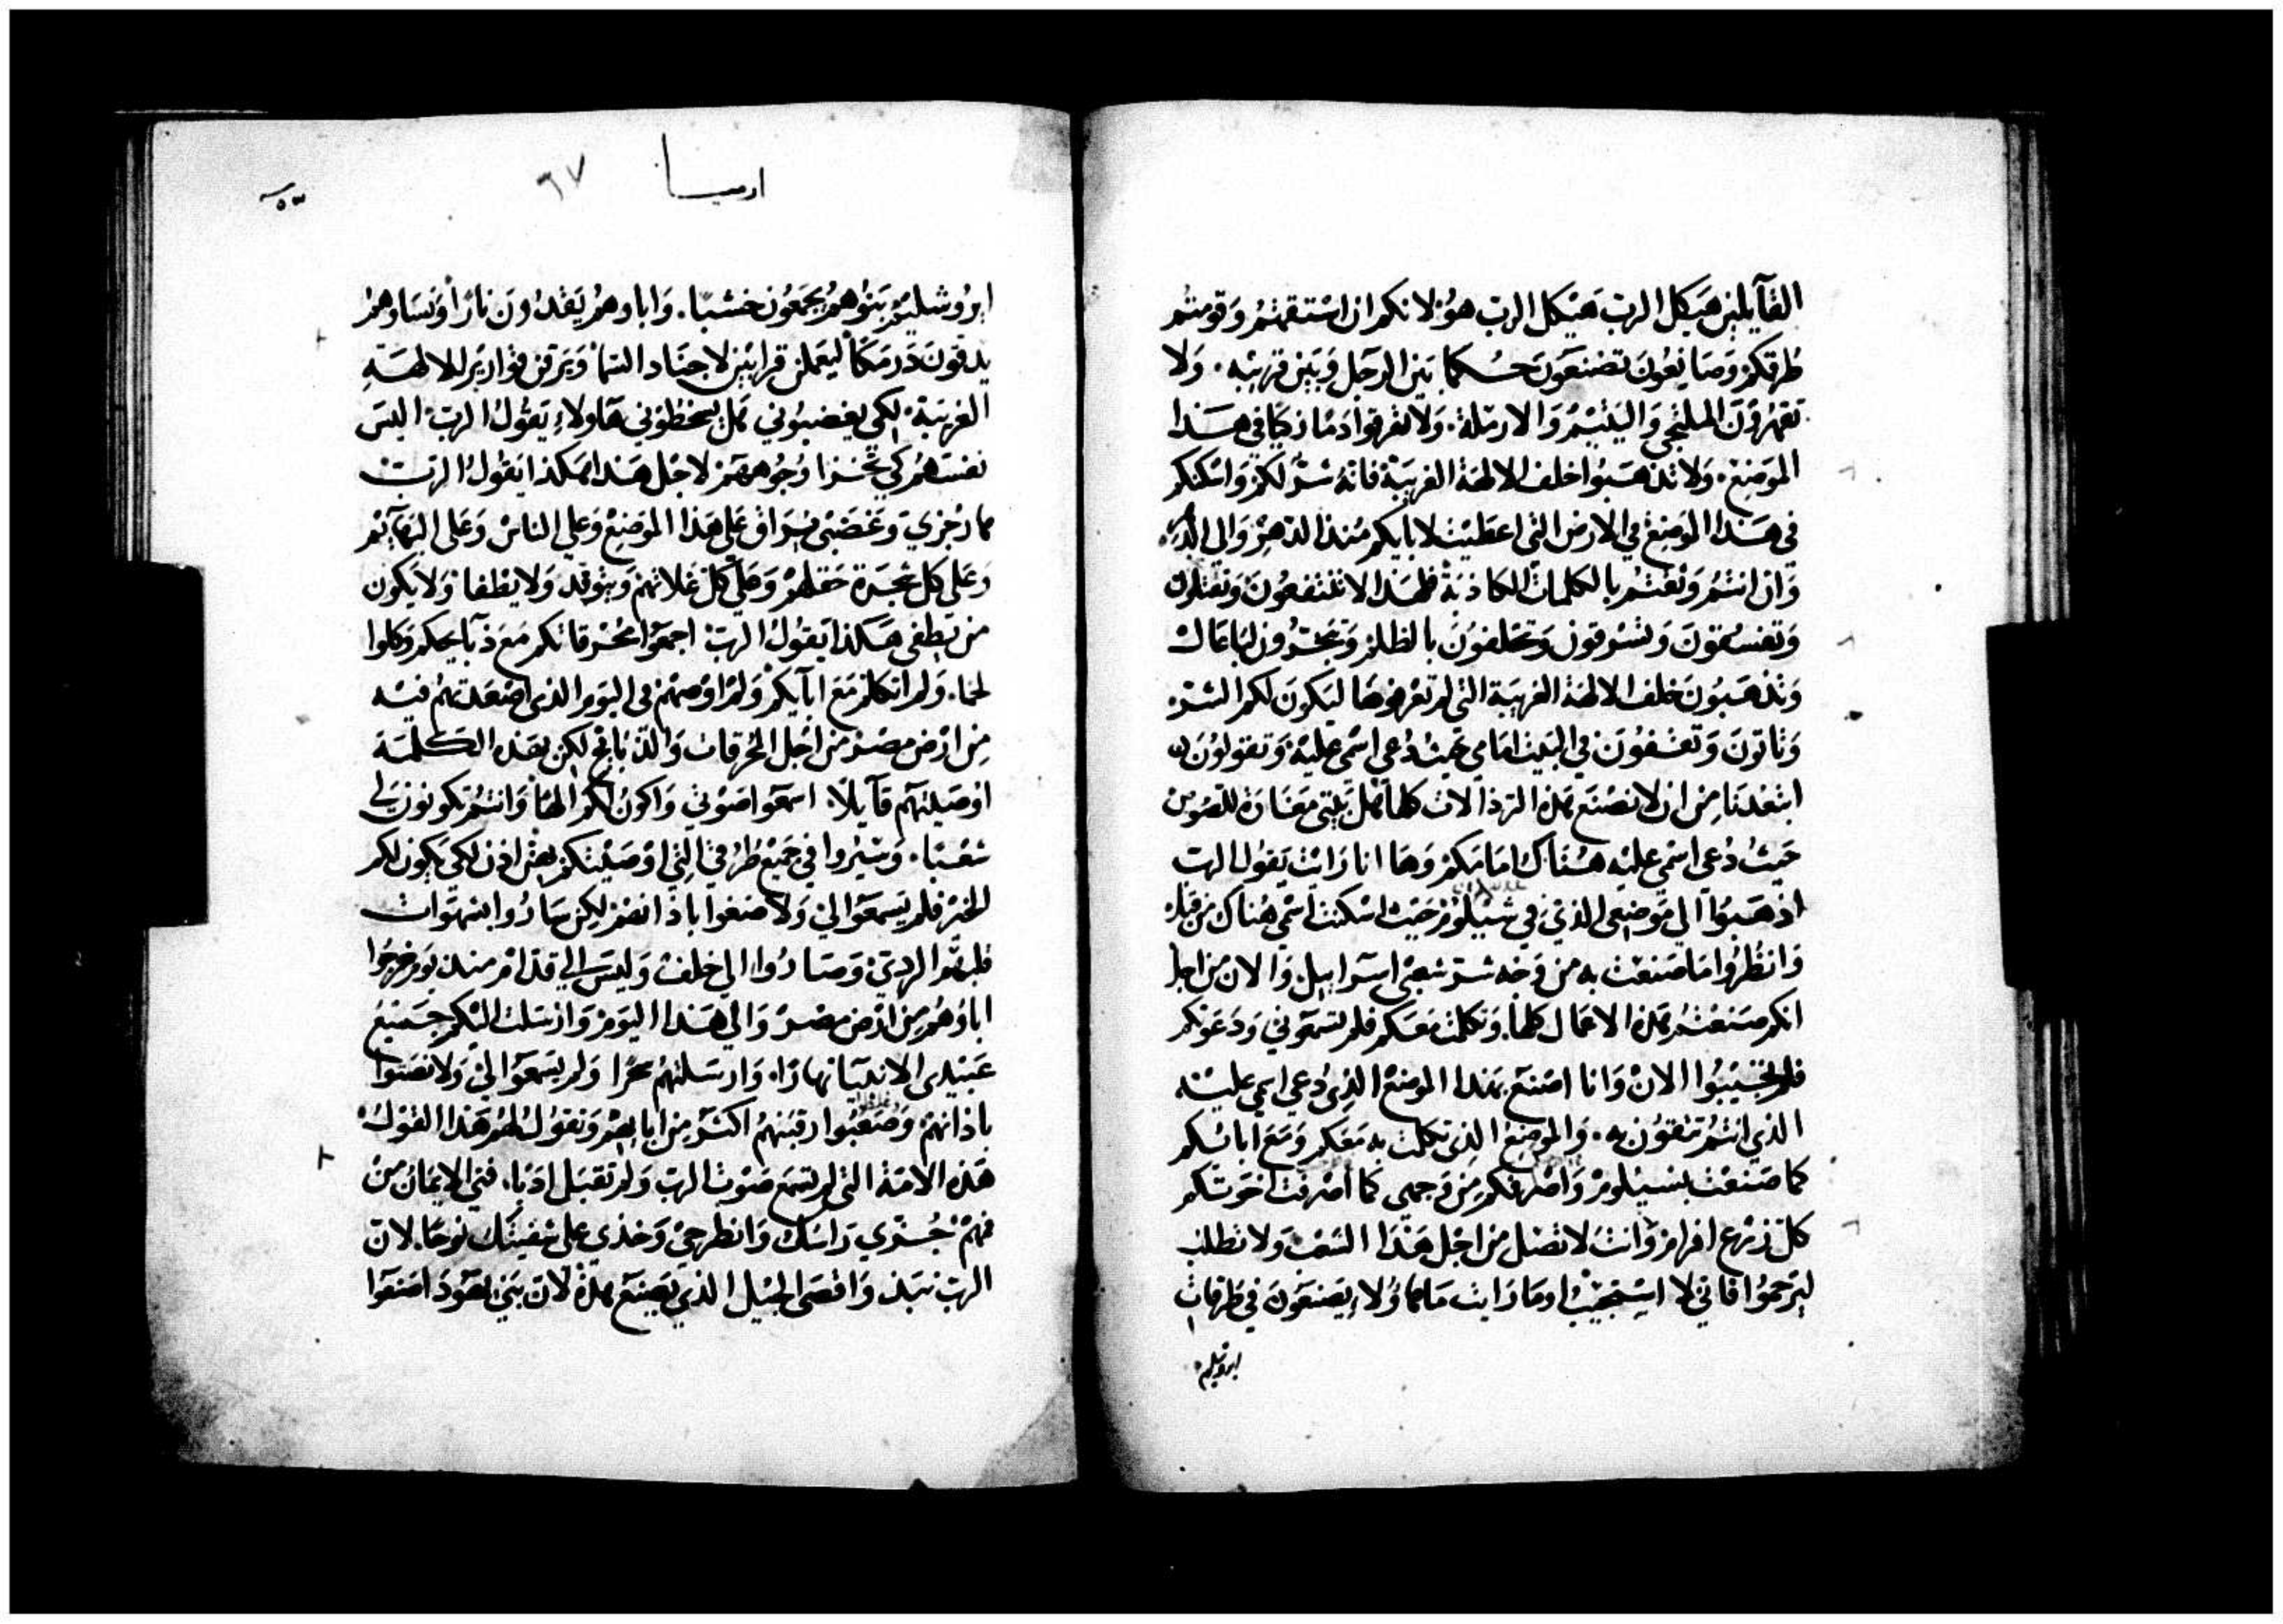 القآيلين هيكل الرب هيكل الرب هو لانكم ان استقمتم وقومتم
طرقكم وصانعون تصنعون حكما بين الرجل وبين قريبه. ولا
تقهرون الملتجي واليتيم والارملة. ولا تهرقوا دما زكيا في هذا
الموضع. ولا تذهبوا خلف الالهة الغريبة فانه شر لكم واسكنكم
في هذا الموضع في الارض التي اعطيت لابايكم منذ الدهر والى الدهر
وان انتم وثقتم بالكلمات الكاذبة فلهذا لا تنتفعون وتقتلون
وتفسقون وتسرقون وتحلفون بالظلم وتبخرون لباعال
وتذهبون خلف الالهة الغريبة التي لم تعرفوها ليكون لكم الشر.
وتاتون وتقفون في البيت امامي حيث دعي اسمي عليه وتقولون
ابتعدنا من ان لا نصنع هذه الرذالات كلها هل بيتي مغارة للصوص
حيث دعي اسمي عليه هناك امامكم وها انا رايت يقول الرب
اذهبوا الى موضعي الذي في شيلوم حيث اسكنت اسمي هناك من قبل
وانظروا ما صنعت به من وجه شر شعبي اسراييل. والان من اجل
انكم صنعتم هذه الاعمال كلها. وتكلمت معكم فلم تسمعوني ودعوتكم
فلم تجيبوا الان وانا اصنع بهذا الموضع الذي دعي اسمي عليه
الذي انتم تثقون به. والموضع الذي تكلمت به معكم ومع ابائكم
كما صنعت بسيلوم واصرفكم من وجهي كما اصرفت اخوتكم
كل زرع افرام وانت لا تصل من اجل هذا الشعب ولا تطلب
ليرحموا فاني لا استجيب اوما رايت ما هاولاء يصنعون في طرقات
ايروشليم
ارميا
٦٧
ايروشليم بنوهم يجمعون خشبا. واباوهم يقدون نارا ونساوهم
يدقون درمكا ليعملن قرابين لاجناد السما ويرقن قوارير للالهة
الغريبة. لكي يغضبوني هل يسخطوني هاولاء يقول الرب اليس
نفسهم كي تخزا وجوههم لاجل هذا هكذا يقول الرب
ها رجزي وغضبي يهراق على هذا الموضع وعلى الناس وعلى البهايم
وعلى كل شجرة حقلهم وعلى كل غلاتهم ويتوقد ولا يطفا ولا يكون
من يطفى هكذا يقول الرب اجمعوا محرقاتكم مع ذبايحكم وكلوا
لحما. ولم اتكلم مع ابآيكم ولم اوصهم في اليوم الذي اصعدتهم فيه
من ارض مصر من اجل المحرقات والذبايح لكن بهذه الكلمة
اوصيتهم قآيلا. اسمعوا صوتي واكون لكم الها وانتم تكونون لي
شعبا. وسيروا في جميع طرقي التي اوصيتكم لكي يكون لكم
الخير فلم يسمعوا الي ولا صغوا باذانهم لكن ساروا بشهوات
قلبهم الردي وصاروا الى خلف وليس الى قدام منذ يوم خرجوا
اباوهم من ارض مصر والى هذا اليوم وارسلت اليكم جميع
عبيدي الانبيا نهارا. وارسلتهم سحرا ولم يسمعوا الي ولا نصتوا
باذانهم وصعبوا رقبتهم اكثر من ابايهم وتقول لهم هذا القول.
هذه الامة التي لم تسمع صوت الرب ولم تقبل ادبا. فني الايمان من
فمهم جزي راسك وانطرحي وخذي على شفتيك نوحا. لان
الرب نبذ واقصى الجيل الذي يصنع هذه لان بني يهوذا صنعوا